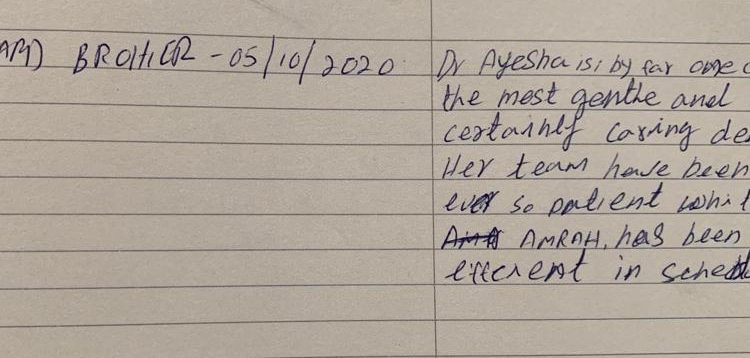 AM) BROHIER - 05/10/2020
Dr Ayesha is, by far one o
the most genthe and
certainly caring de
Her team have been
ever so patient whil
AMRAH, has been
efficient in sched